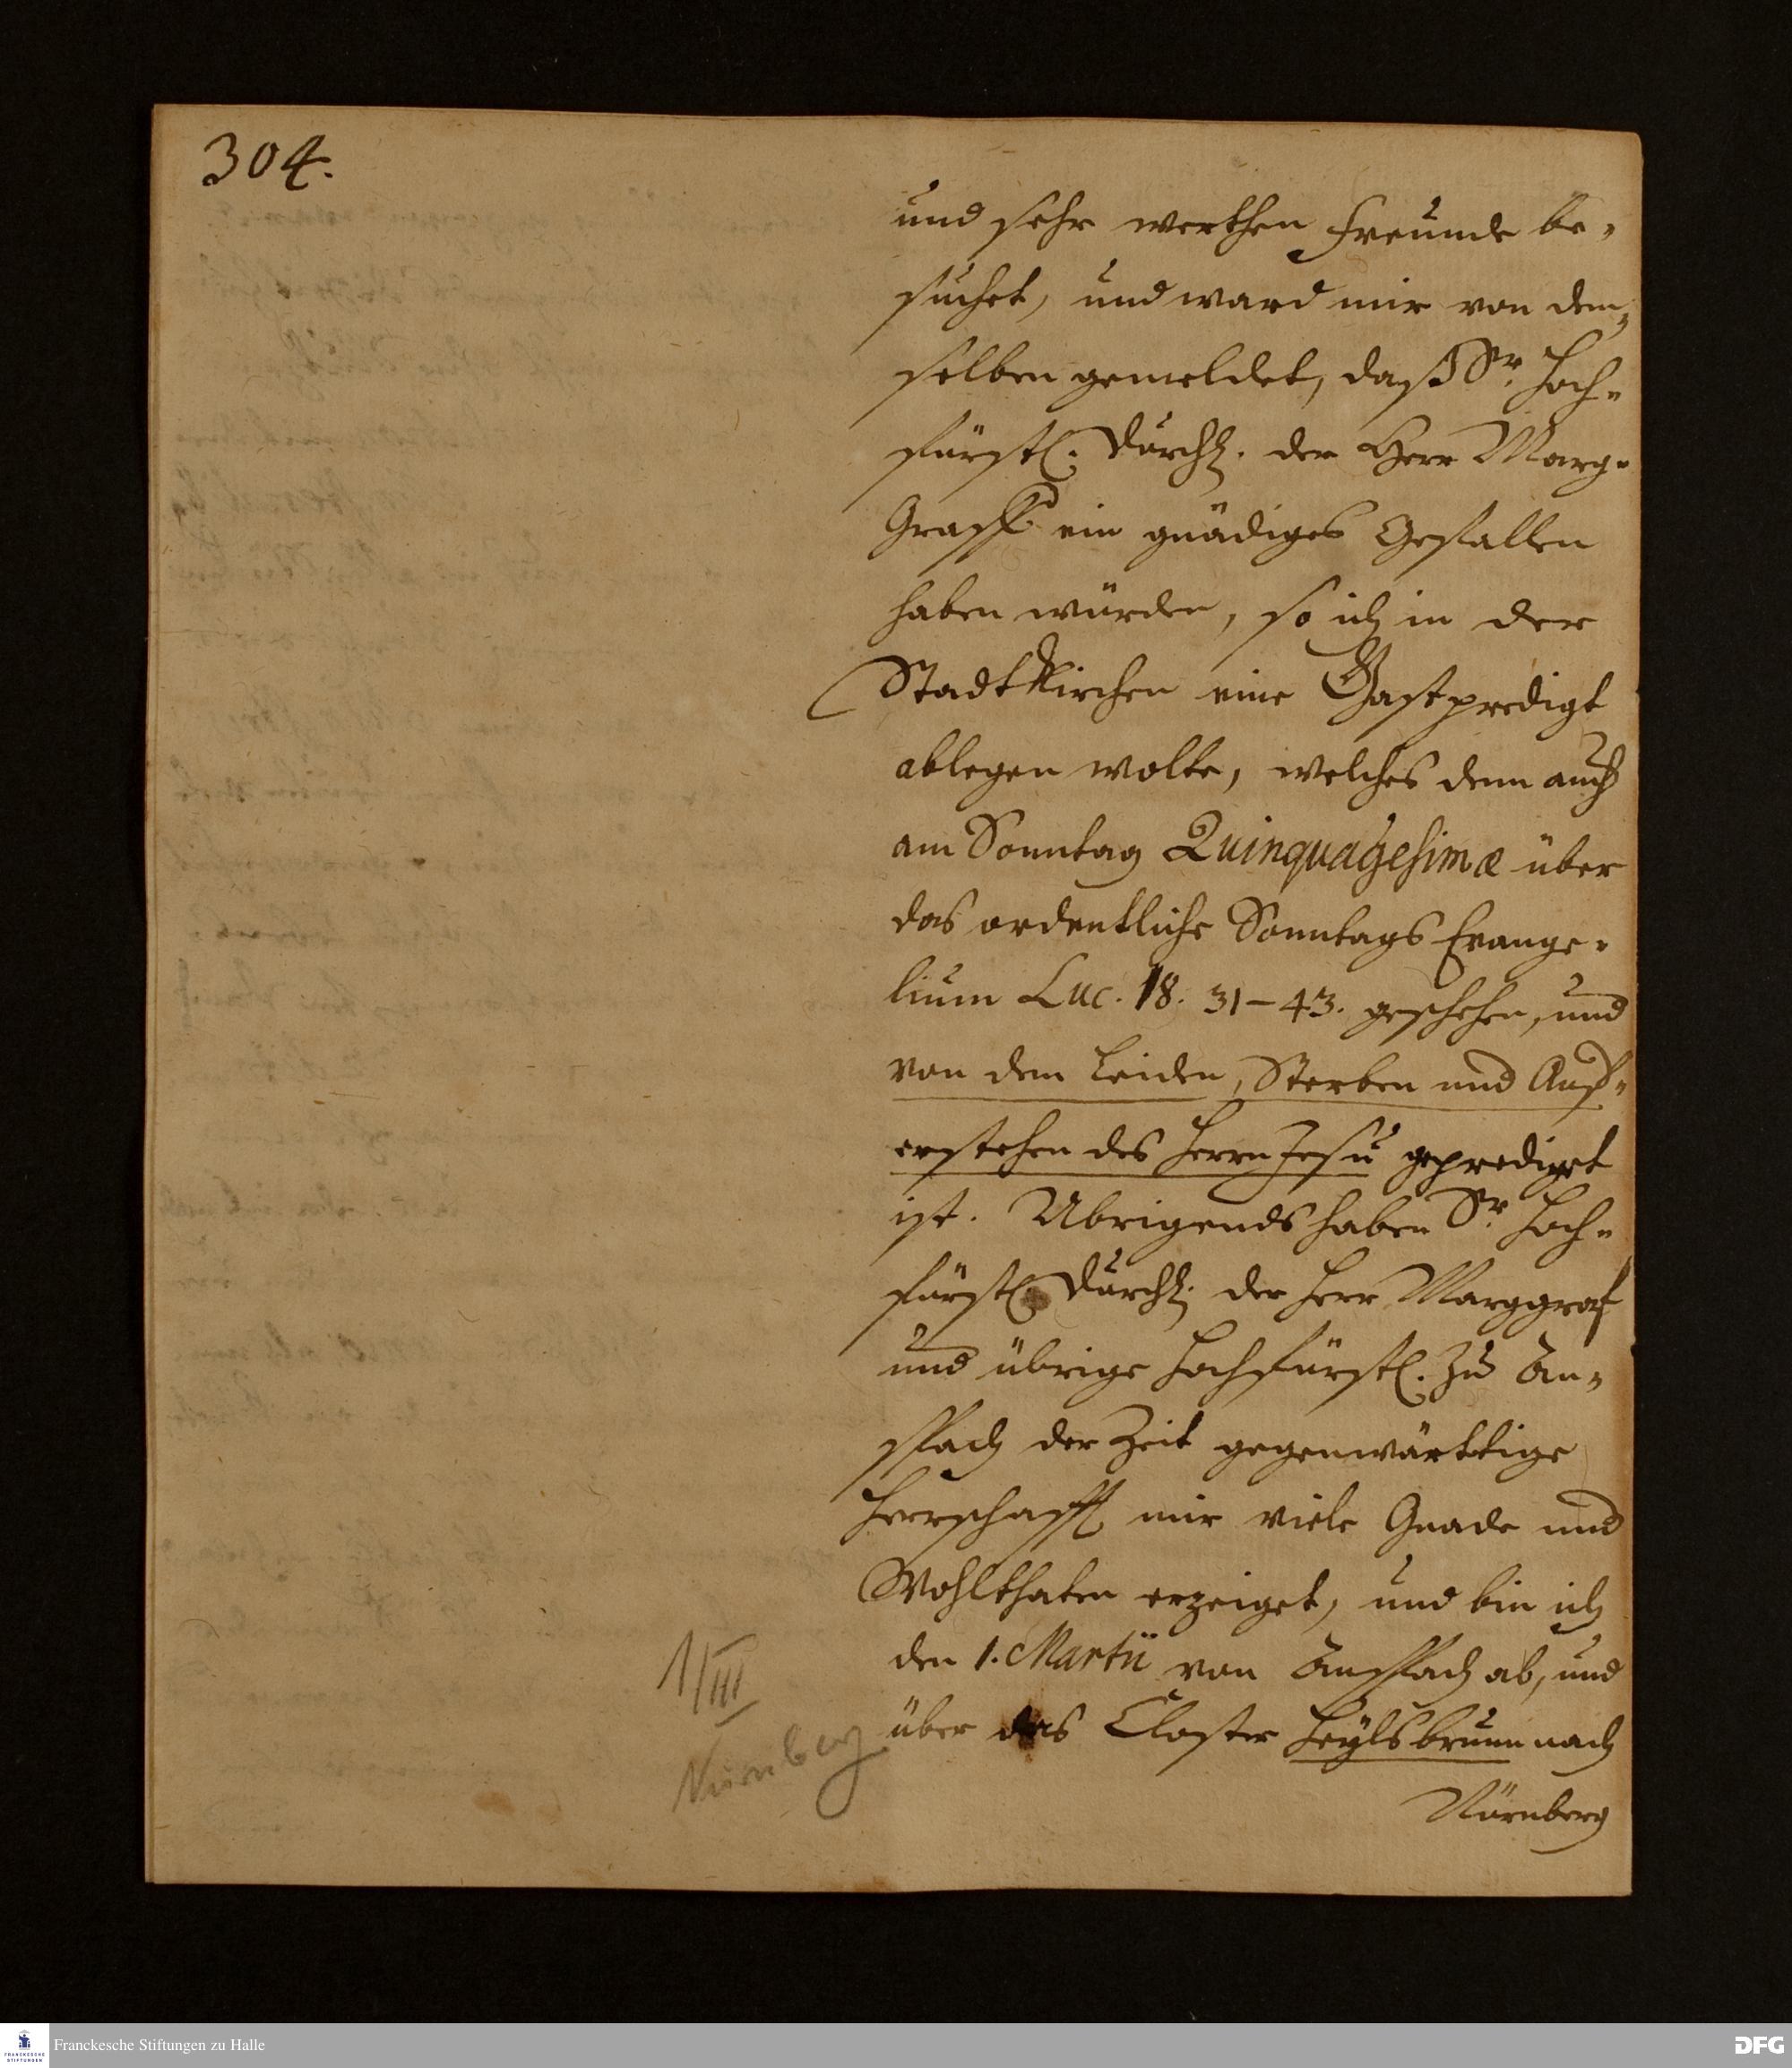 304.
und sehr werthen Freunde be-
suchet, und ward mir von dem-
selben gemeldet, daß Sr. Hoch-
fürstl. Durchl. der Herr Marg-
Graff ein gnädiges Gefallen
haben würden, so ich in der
Stadtkirchen eine Gastpredigt
ablegen wolte, welches denn auch
am Sonntag Quinquagesimæ über
das ordentliche Sonntags Evange-
lium Luc. 18. 31-43. geschehen, und
von dem Leiden, Sterben und Auf-
erstehen des Herrn Jesu geprediget
ist. Ubrigends haben Sr. Hoch-
fürstl. Durchl. der Herr Marggraf
und übrige Hochfürstl. zu An-
spach der Zeit gegenwärttige
Herrschafft mir viele Gnade und
Wohlthaten erzeiget, und bin ich
den 1. Martii von Anspach ab, und
über das Closter Heylsbrunn nach
Nürnberg
1/III
Nürnberg
Franckesche Stiftungen zu Halle
FRANCKESCHE
STIFTUNGEN
DFG